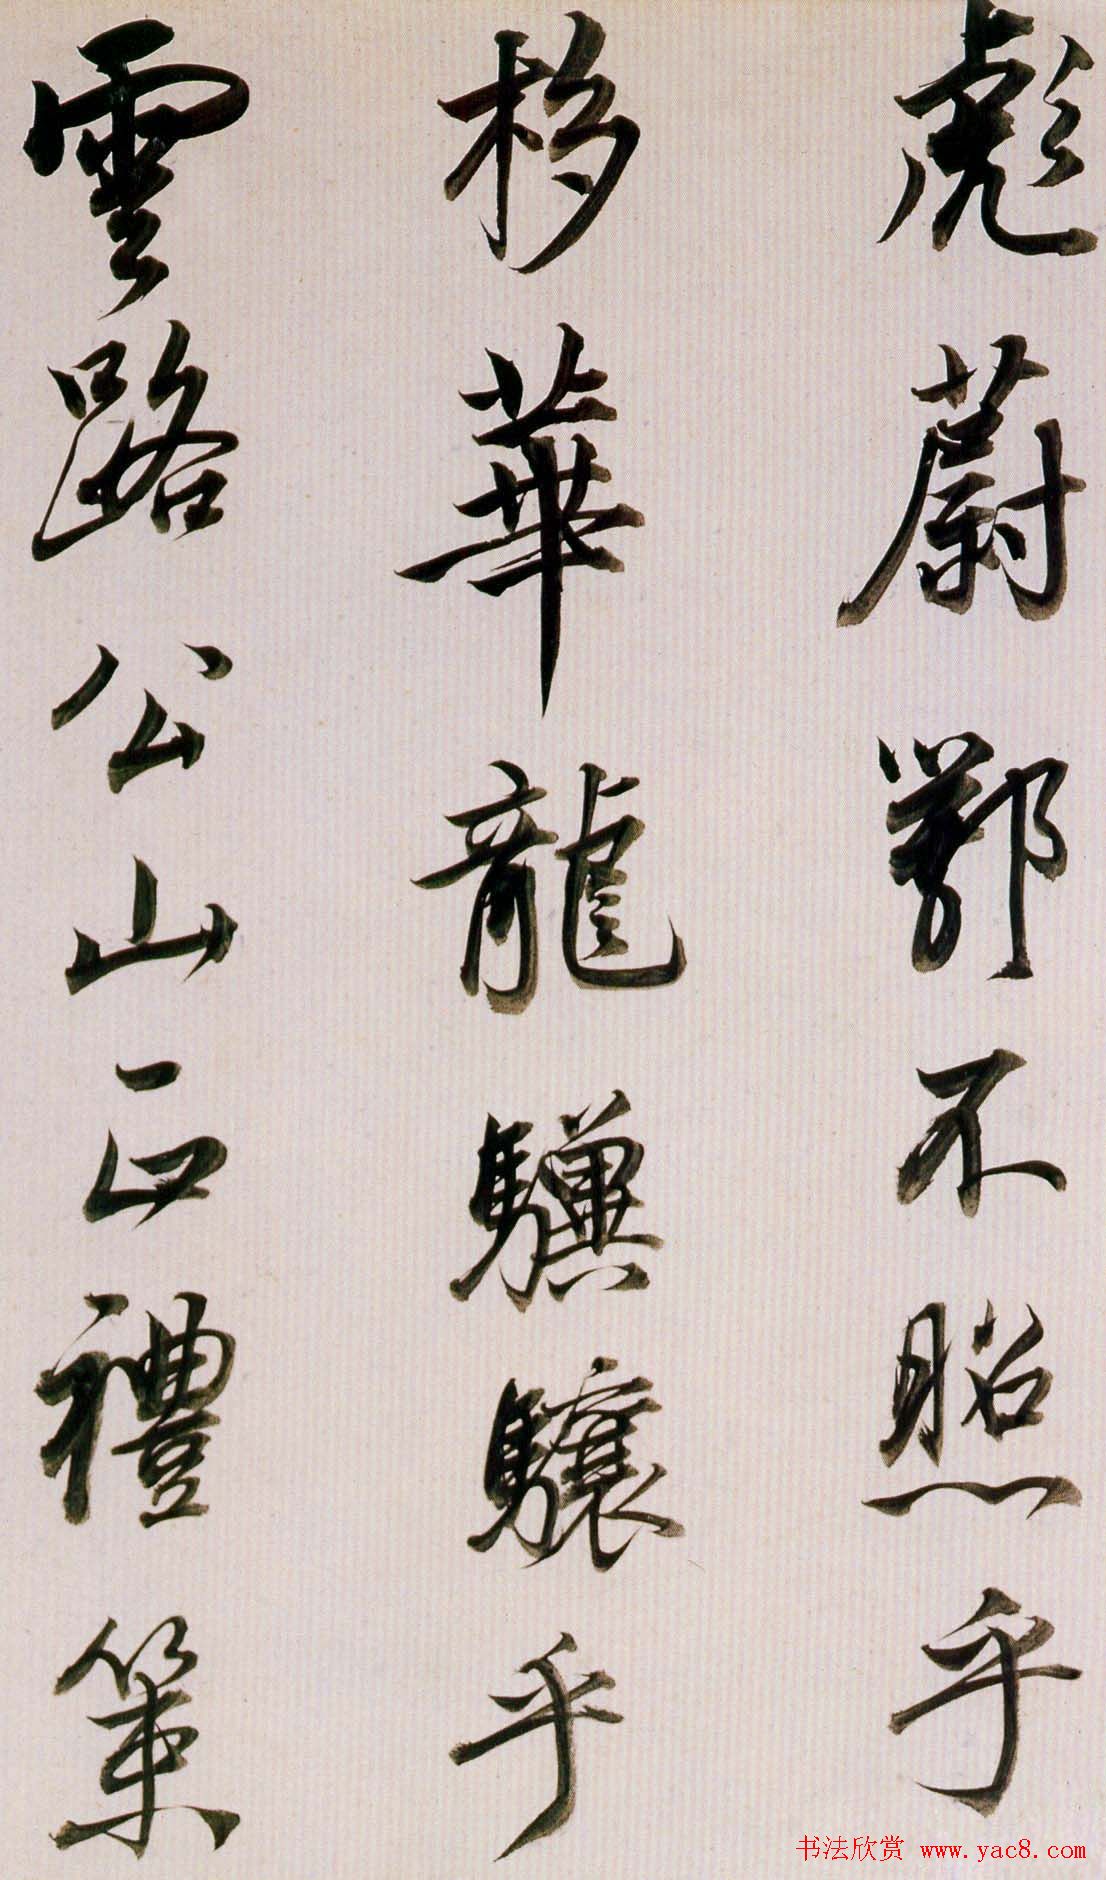 彪蔚鄂不照乎
移華龍驥驤乎
雲路公山正禮策
书法欣赏 www.yac8.com